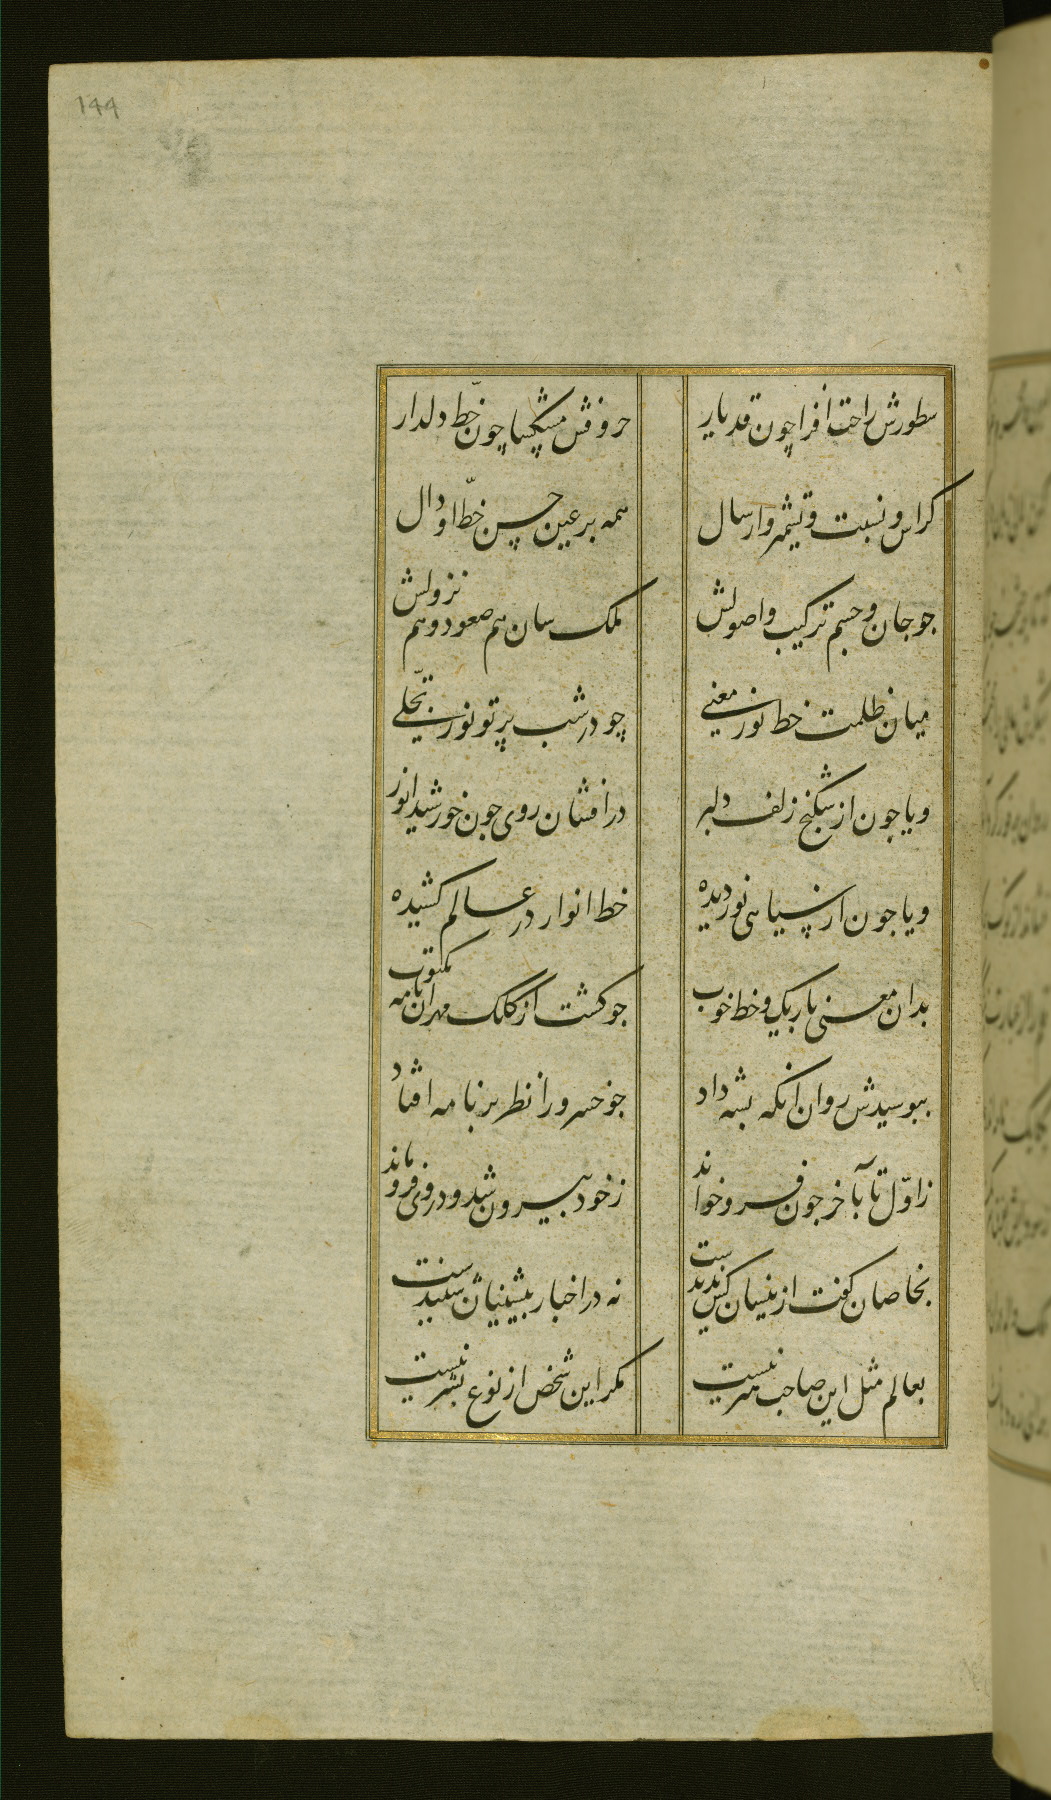 144
سطورش راحت افزا چون قد یار
حروفش مشکسا چون خطّ دلدار
کراس و نسبت و تشمیر و ارسال
همه بر عین حسن خطّ او دال
جو جان و جسم ترکیب و اصولش
ملک سان هم صعود و هم نزولش
میان ظلمت خط نور معنی
چو در شب پرتو نور تجلّی
و یا جون از شکنج زلف دلبر
درافشان روی جون خورشید انور
و یا جون از سیاهی نور دیده
خط انوار در عالم کشیده
بدان معنی باریک و خط خوب
جو کشت از کلک مهر ان نامه مکتوب
ببوسیدش روان انکه بشه داد
جو خسرو را نظر بر نامه افتاد
ز اوّل تا بآخر جون فرو خواند
ز خود بیرون شد و در وی فرو ماند
بخاصان کفت از ینسان کس ندیدست
نه در اخبار بیشینیان
بعالم مثل این صاحب هنر نیست
مکر این شخص از نوع بشر نیست